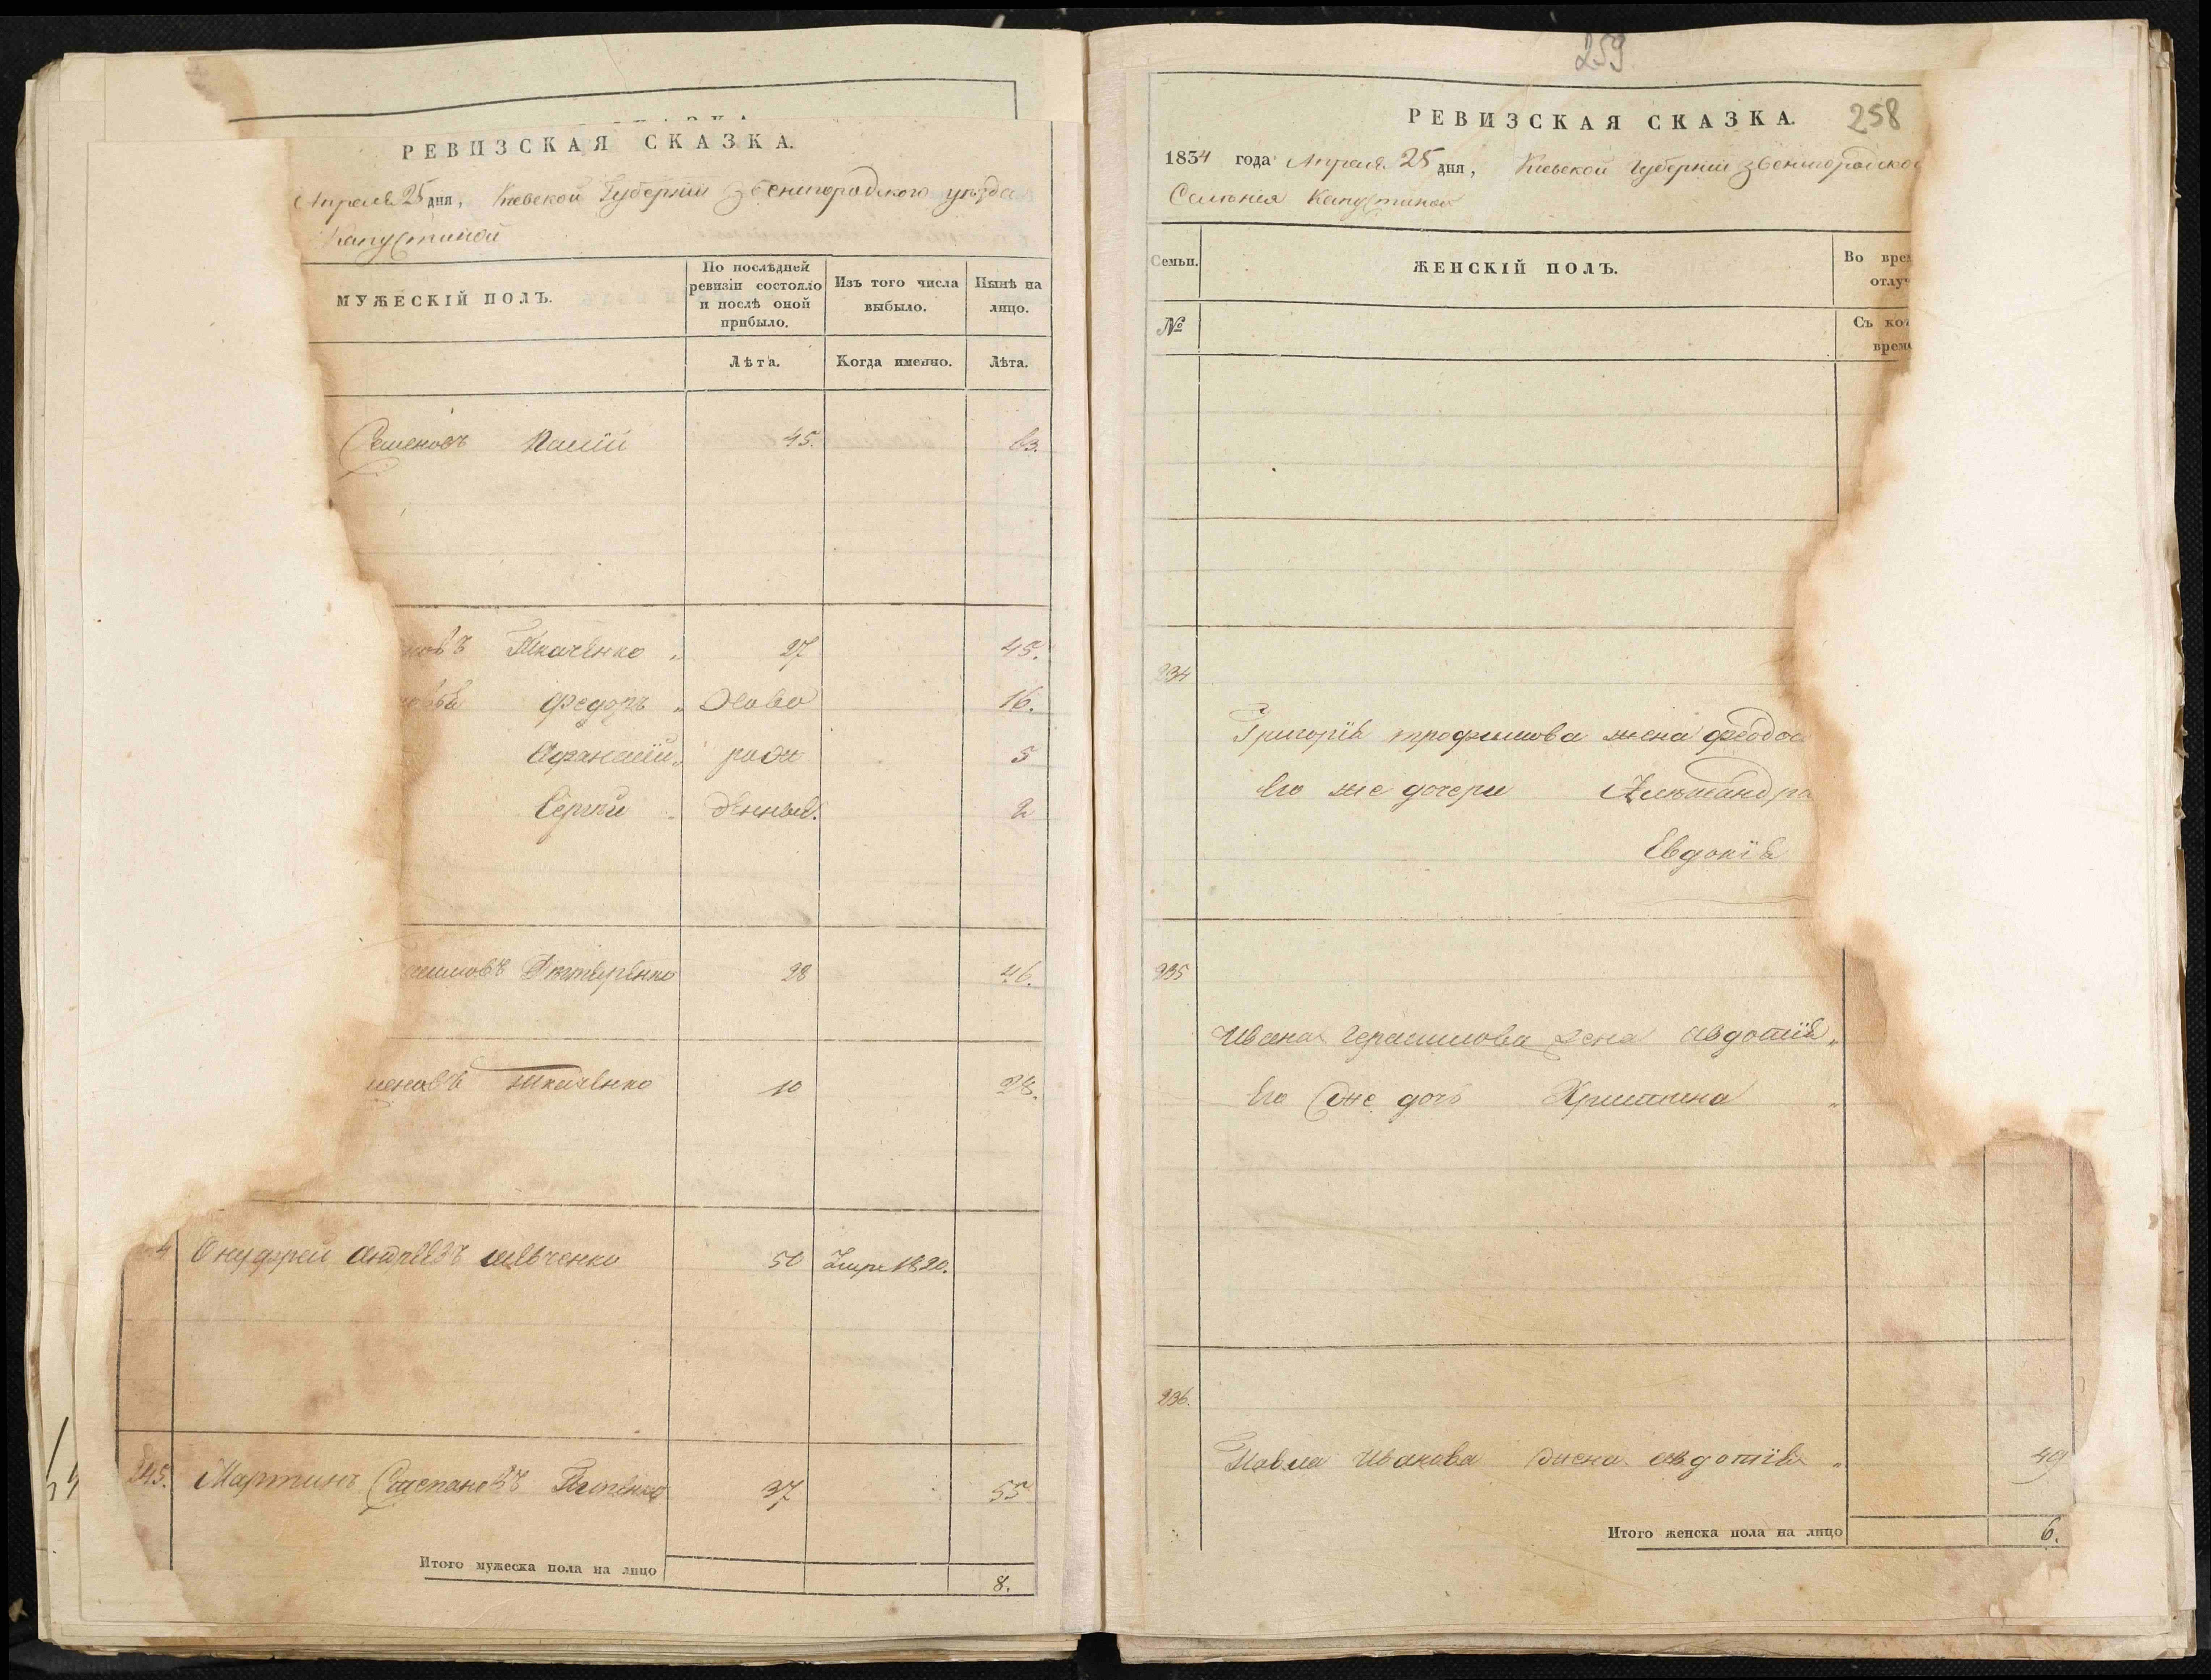 РЕВИЗСКАЯ СКАЗКА.
Апреля 25 дня, Киевской Губернiи Звенигородского уезда
Капустиной
МУЖЕСКІЙ ПОЛЪ.
По послѣдней ревизіи состояло и послѣ оной прибыло.
Изъ того числа выбыло.
Нынѣ на лицо.
Лѣта.
Когда именно.
Лѣта.
Семеновъ 45. 63.
новъ Ткаченко 27 45.
Федоръ Ново 16.
Афанасiй рож 5
Сергiй денные. 2
симовъ 28 46.
меновъ Ткаченко 10 28.
4 Онуфрей Андреевъ Шевченко 50 Умре 1820.
245. Мартинъ Степановъ 37 55
Итого мужеска пола на лицо 8.
259
РЕВИЗСКАЯ СКАЗКА. 258
1834 года Апреля 25 дня, Киевской Губернiи Звенигородско
Селенiя Капустиной
Семьи.
ЖЕНСКІЙ ПОЛЪ.
Во вре
отлу
№
Съ ко
врем
234
Григорiя Трофимова жена Феодос
Его же дочери Александра
Евдокiя
235
Ивана Герасимова жена Авдотiя
Его же дочь Христина
236.
Павла Иванова жена Авдотiя 49
Итого женска пола на лицо 6.